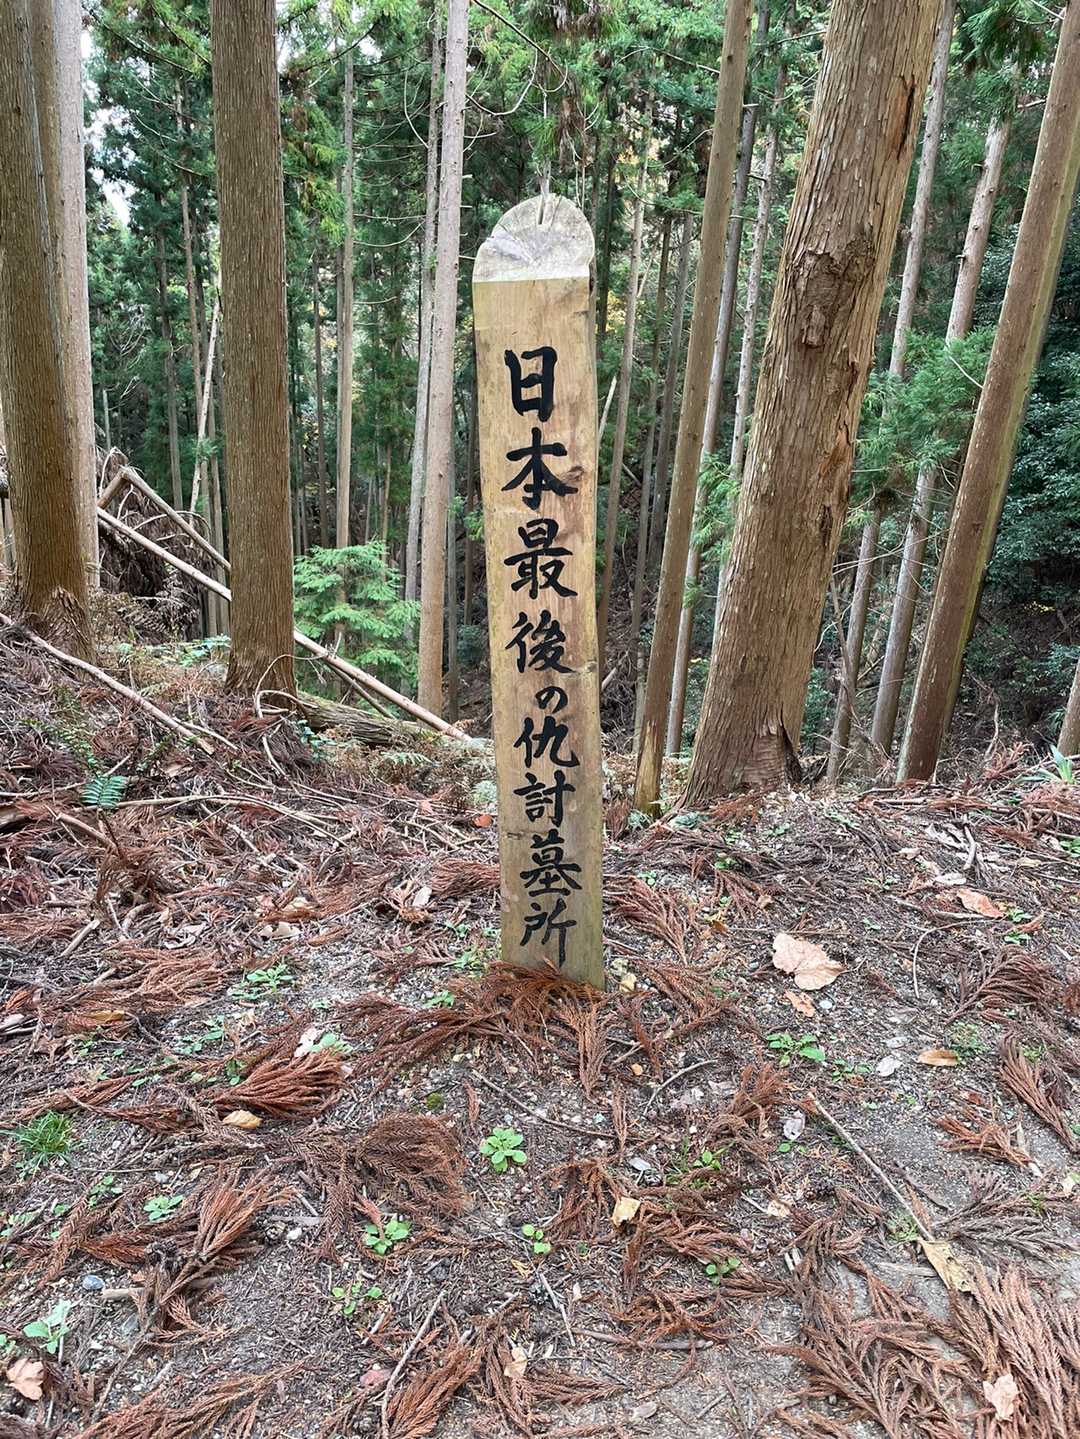 日本最後の仇討墓所